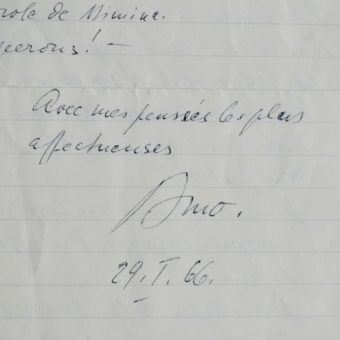 role de Mimine.
perons! —
Avec mes pensées les plus
affectueuses
Arno.
29. I. 66.